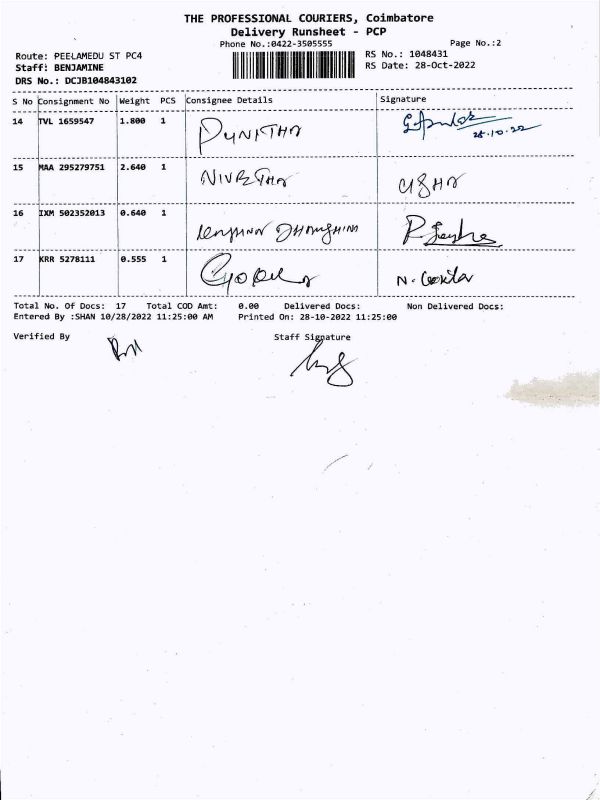 THE PROFESSIONAL COURIERS, Coimbatore
Delivery Runsheet - PCP
Phone No.:0422-3505555
Page No.:2
Route: PEELAMEDU ST PC4
RS No.: 1048431
Staff: BENJAMINE
RS Date: 28-Oct-2022
DRS No.: DCJB104843102
S No Consignment No Weight PCS Consignee Details Signature
14 TVL 1659547 1.800 1 PUNITHA
28.10.22
15 MAA 295279751 2.640 1 NIVETHA USHA
16 IXM 502352013 0.640 1
17 KRR 5278111 0.555 1
Total No. Of Docs: 17 Total COD Amt: 0.00 Delivered Docs: Non Delivered Docs:
Entered By :SHAN 10/28/2022 11:25:00 AM Printed On: 28-10-2022 11:25:00
Verified By Staff Signature